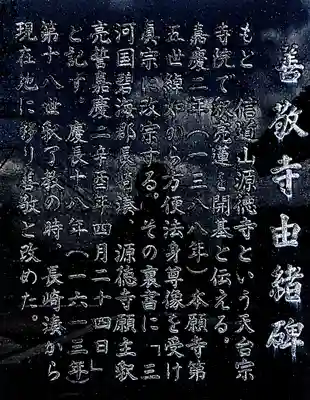 善敬寺由緒碑
もと、信道山源徳寺という天台宗
寺院で釈亮蓮を開基と伝える。
嘉慶二年(一三八八年)本願寺第
五世綽如から方便法身尊像を受け
真宗に改宗する。その裏書に「三
河国碧海郡長崎湊、源徳寺願主釈
亮誓嘉慶二辛酉年四月二十四日」
と記す。慶長十八年(一六一三年)
第十八世釈了教の時、長崎湊から
現在地に移り善敬と改めた。